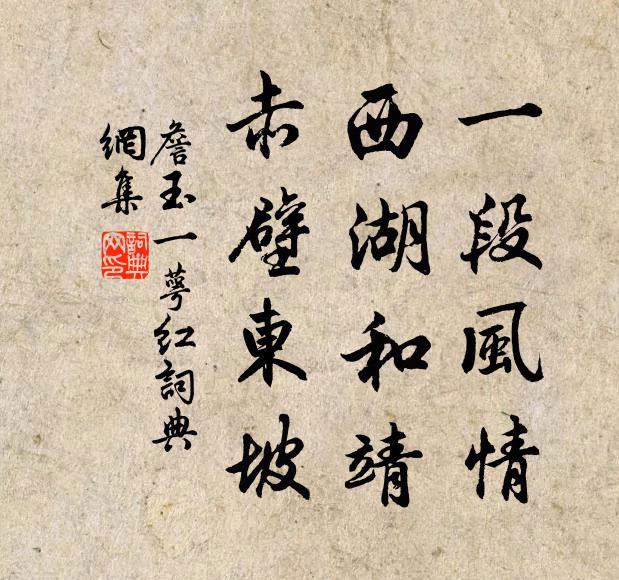 一段風情
西湖和靖
赤壁東坡
詹玉一萼紅詞典
網集
詞典
网印